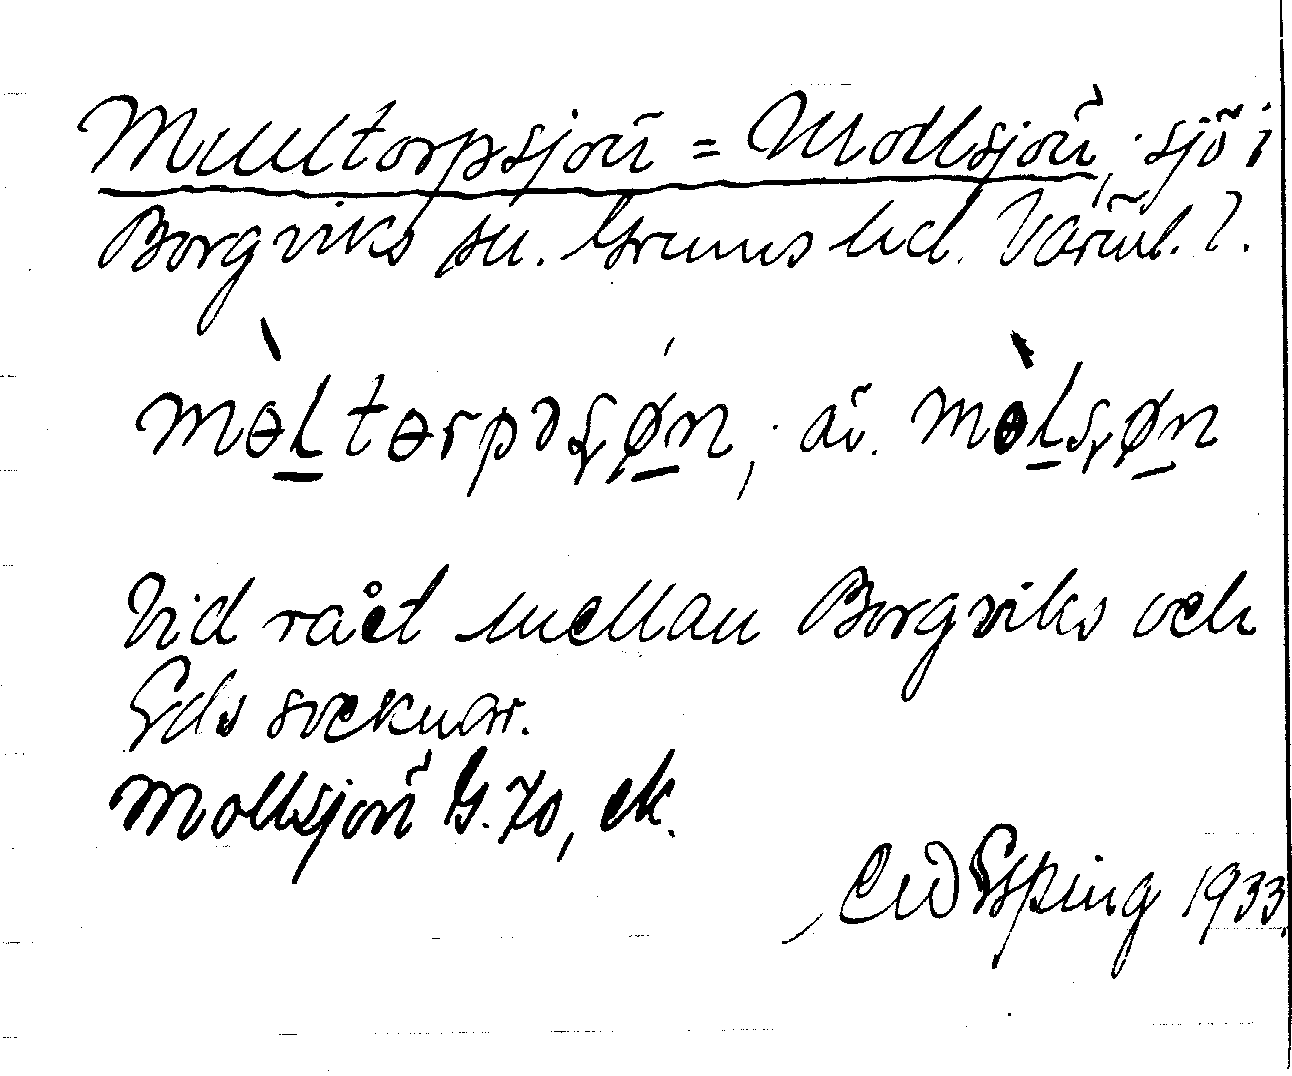 Mulltorpsjön = Mollsjön, sjö i
Borgviks sn. Grums hd. Värml. l.
mɵ̀ltɵrpəʂø̀n, äv. mɵ̀lʂøn
Vid rået mellan Borgviks och
Eds socknar.
Mollsjön G. 70, ek.
Esping 1933.